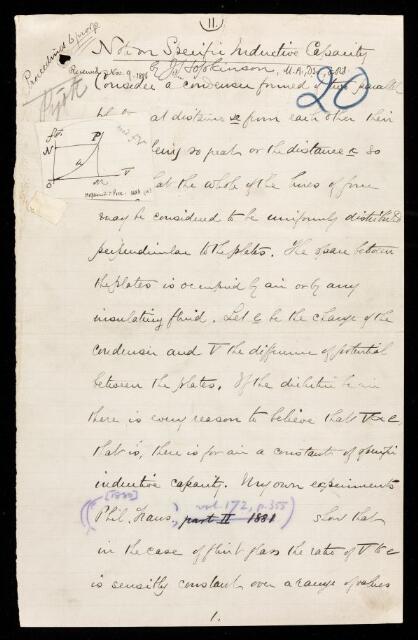 11.
Note on Specific Inductive Capacity
by J. Hopkinson, M.A., D.Sc., F.R.S.
Received Nov. 9, 1886
20
Consider a condenser formed of two parallel
at distance x from each other their
being so great or the distance x so
that the whole of the lines of force
may be considered to be uniformly distributed
perpendicular to the plates. The space between
the plates is occupied by air or by any
insulating fluid. Let e be the charge of the
condenser and V the difference of potential
between the plates. If the dielectric be air
there is every reason to believe that V∝e
that is, there is for air a constant of specific
inductive capacity. My own experiments
(Phil. Trans., [1880] vol. 172, p. 355) part II 1881 show that
in the case of flint glass the ratio of V to e
is sensibly constant over a range of values
1.